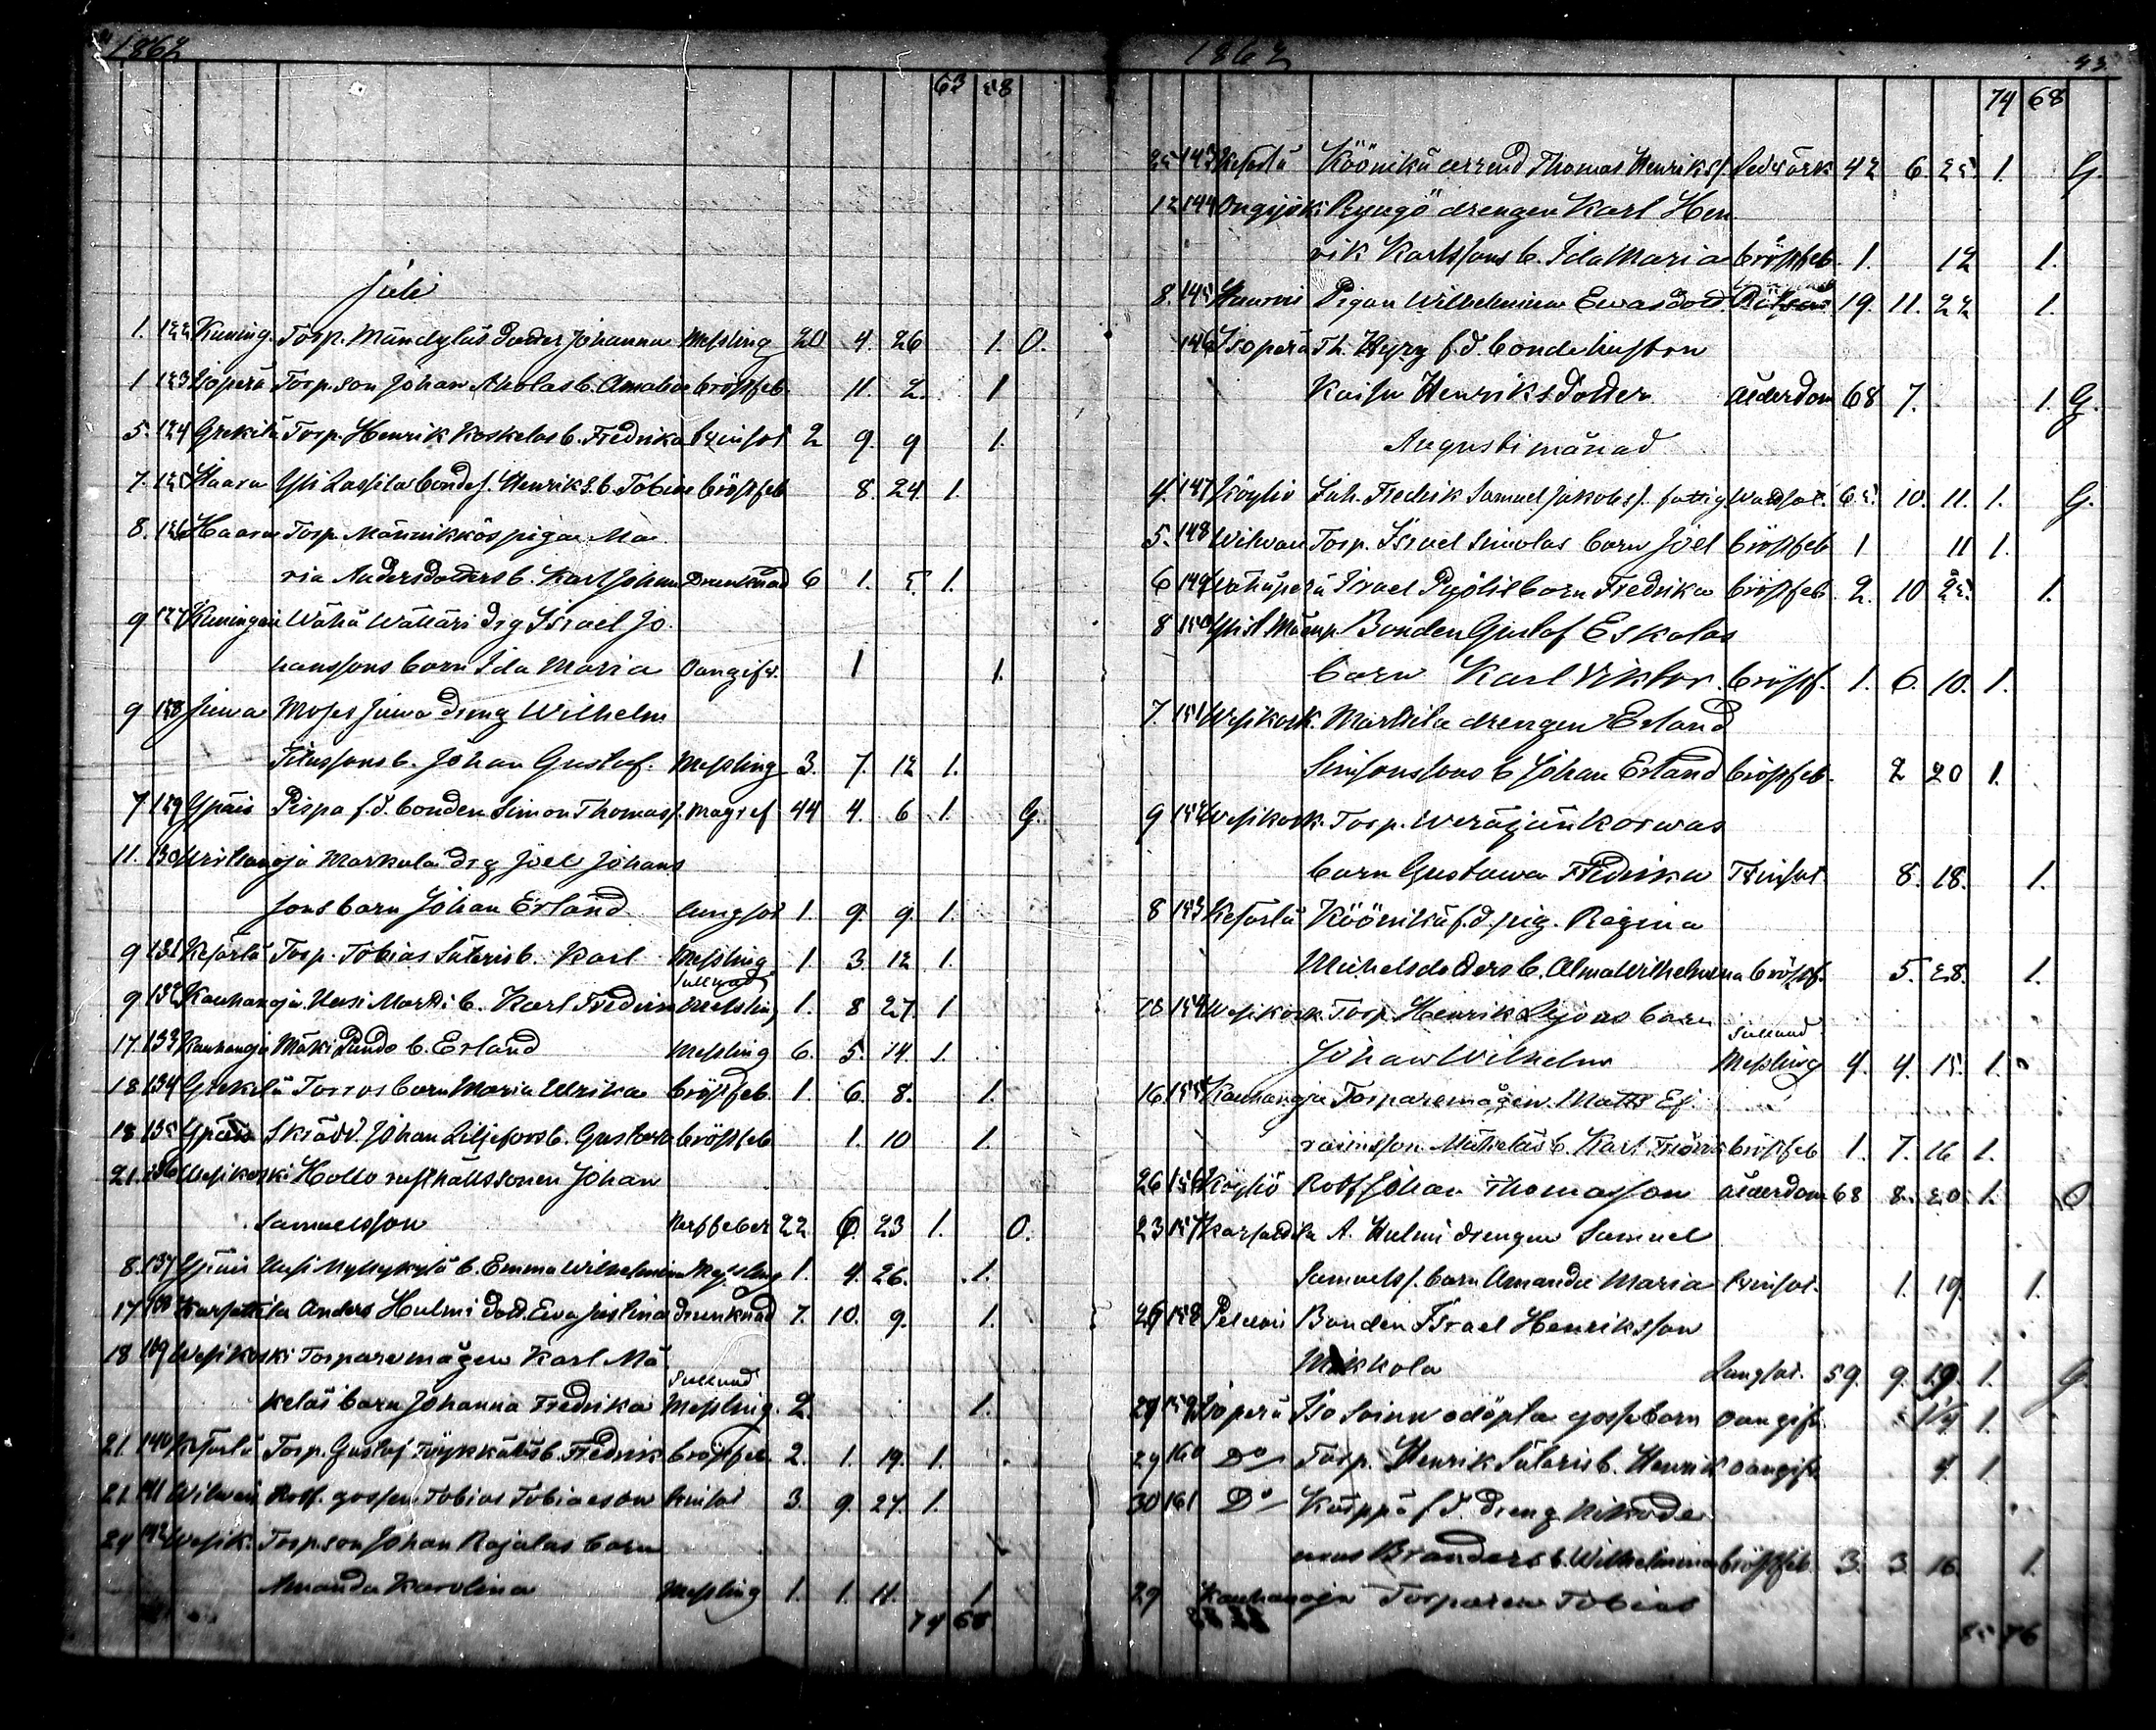 1862
63 58
Juli
1. 122 Kuning. Torp. Mändyläs Dotter Johanna Messling 20 4. 26 1. O.
1 123 Isoperä Torp.son Johan Aholas b. Amalia bröstfeb. 11. 2. 1
5. 124 Grekilä Torp. Henrik Koskelas b. Fredrika 2 9. 9 1.
7. 125 Haara Yli Lassila bondes. Henriks b. Tobias bröstfeb 8. 24. 1.
8. 126 Haara Torp. Männikkös pigan Ma
ria Andersdotters b. Karl Johan Drunknad 6 1. 5. 1.
9 127 Kuningan Wähä Wälläri drg Israel Jo
hanssons barn Ida Maria Oangifv. 1 1.
9 128 Juwa Moses Juwa dreng Wilhelm
Titussons b. Johan Gustaf. Messling 3. 7. 12 1.
7 129 Ypäis Pispa f.d. bonden Simon Thomass. Magref 44 4. 6 1. G.
11. 130 Wirlanoja Markula drg Joel Johans
sons barn Johan Erland lungsot 1. 9. 9. 1.
9 131 Kefarlä Torp. Tobias Säteris b. Karl Messling 1. 3. 12 1.
9 132 Kauhanoja Uusi Martti b. Karl Fredrik Messling 1. 8 27. 1
17. 133 Kauhanoja Mäki b. Erland Messling 6. 5. 14. 1.
18. 134 Grekilä Torros barn Maria Ulrika bröstfeb. 1. 6. 8. 1.
18 135 Ypäis Skrädd. Johan Liljefors b. Gustava bröstfeb 1. 10 1.
21. 136 Wesikoski Hollo rusthållssonen Johan
Samuelsson Nerffeber 22. 6. 23 1. O.
8. 137 Ypäis Uusi b. Emma Wilhelmina Messling 1. 4. 26. 1.
17 138 Karsattila Anders Hulmi dott. Eva Justina drunknad 7. 10. 9. 1.
18 139 Wesikoski Torparemågen Karl Mä
keläs barn Johanna Fredrika Messling. 2. 1.
21. 140 Kefarlä Torp. Gustaf Töykkäläs b. Fredrik bröstfeb. 2. 1. 19. 1.
21 141 Rotf. gossen Tobias Tobiasson 3. 9. 27. 1.
24 142 Wesik. Torp.son Johan Rajalas barn
Amanda Karolina Messling 1. 1. 11. 1
74 68
1862 43.
74 68
25 143 Kefarlä Köönikä arrend Thomas Henrikss. 42 6 25 1. G.
12 144 Ongijoki drengen Karl Hen
rik Karlssons b. Ida Maria bröstfeb. 1. 12 1.
8. 145 Pigan Wilhelmina Ewasdott. 19. 11. 22 1.
146 Isoperä Th. Kyry f.d. bondehustru
Kaisa Henriksdotter ålderdom 68 7. 1. G.
Augusti månad
4. 147 Köyliö Inh. Fredrik Samuel Jakobss. fattig 65 10. 11. 1. G.
5. 148 Torp. Israel Simolas barn Joel bröstfeb 1 11 1.
6 149 Wähäperä Israel barn Fredrika bröstfeb. 2. 10 25. 1.
8 150 Bonden Gustaf Eskolas
barn Karl Viktor. bröstf. 1. 6. 10. 1.
7. 151 Wesikosk. Marttila drengen Erland
Simsonssons b Johan Erland bröstfeb. 2 20 1.
9 152 Wesikosk. Torp. Weräjänkorwas
barn Gustawa Fredrika 8. 18. 1.
8 153 Kefarlä Köönikä f.d. pig. Regina
Michelsdotters b. Alma Wilhelmina bröstf. 5. 28. 1.
18 154 Wesikosk. Torp. Henrik barn
Johan Wilhelm Messling 4. 4. 15. 1.
16. 155 Kauhanoja Torparemågen Matts Ef
raimsson Mattieläs b. Karl Fredrik bröstfeb 1. 7. 16 1.
26 156 Köyliö Rotf Johan Thomasson ålderdom 68 8. 20. 1. O
23 157 Karsattila A. Hulmi drengen Samuel
Samuelss. barn Amanda Maria 1. 19. 1.
29 158 Bonden Israel Henriksson
Mikkola Lungsot. 59. 9. 19. 1. G.
29 159 Isoperä Iso odöpta gossebarn oangifv. 1.
29 160 Do Torp. Henrik Säteris b. Henrik oangifv. 4. 1.
30 161 Do Kaippä f.d. dreng Nikode
mus Branders b. Wilhelmina bröstfeb. 3. 3. 16. 1.
29 Kauhanoja Torparen Tobias